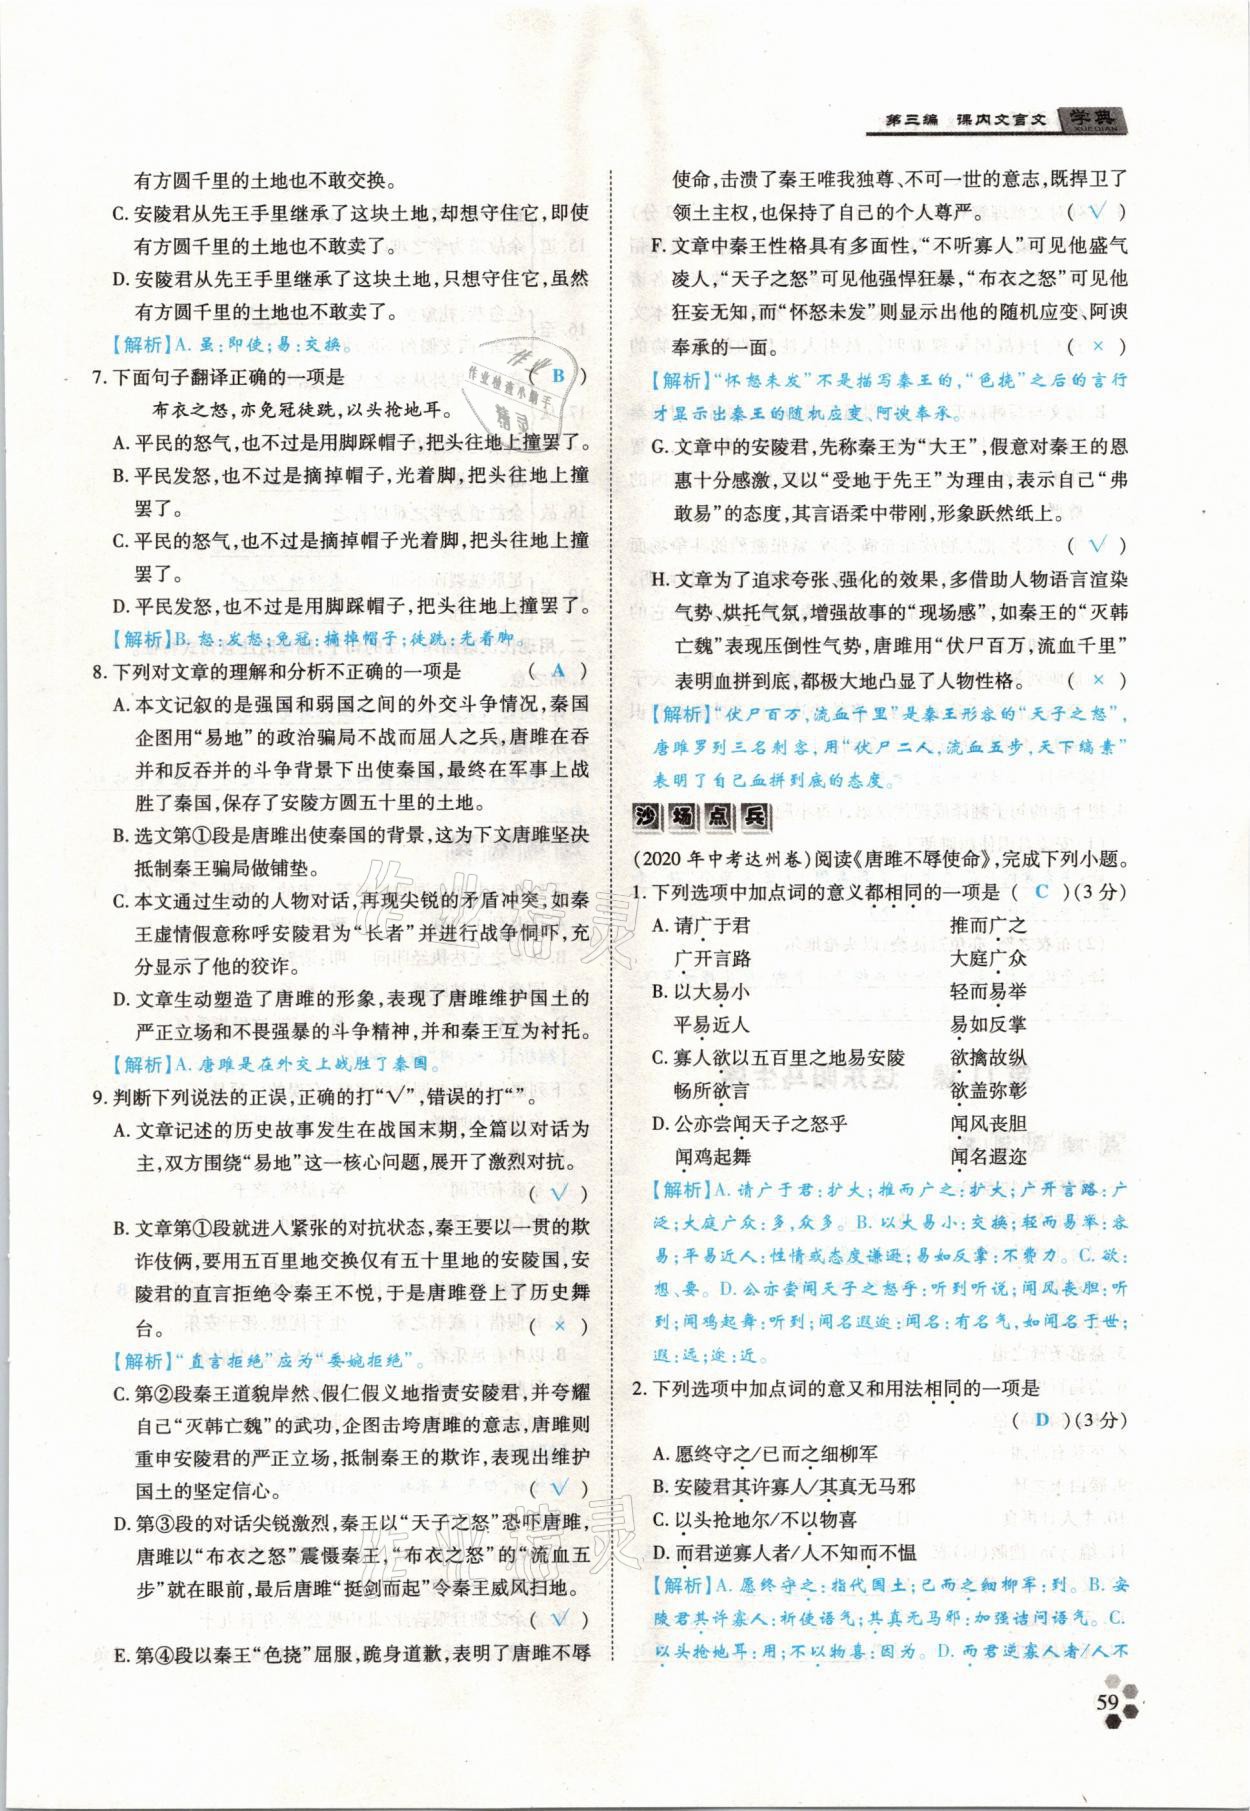 第三编 课内文言文 学典
XUEDIAN
有方圆千里的土地也不敢交换。
C. 安陵君从先王手里继承了这块土地,却想守住它,即使
有方圆千里的土地也不敢卖了。
D. 安陵君从先王手里继承了这块土地,只想守住它,虽然
有方圆千里的土地也不敢卖了。
【解析】A. 虽:即使;易:交换。
7. 下面句子翻译正确的一项是 ( B )
布衣之怒,亦免冠徒跣,以头抢地耳。
A. 平民的怒气,也不过是用脚踩帽子,把头往地上撞罢了。
B. 平民发怒,也不过是摘掉帽子,光着脚,把头往地上撞
罢了。
C. 平民的怒气,也不过是摘掉帽子光着脚,把头往地上撞
罢了。
D. 平民发怒,也不过是用脚踩帽子,把头往地上撞罢了。
【解析】B. 怒:发怒;免冠:摘掉帽子;徒跣:光着脚。
8. 下列对文章的理解和分析不正确的一项是 ( A )
A. 本文记叙的是强国和弱国之间的外交斗争情况,秦国
企图用“易地”的政治骗局不战而屈人之兵,唐雎在吞
并和反吞并的斗争背景下出使秦国,最终在军事上战
胜了秦国,保存了安陵方圆五十里的土地。
B. 选文第①段是唐雎出使秦国的背景,这为下文唐雎坚决
抵制秦王骗局做铺垫。
C. 本文通过生动的人物对话,再现尖锐的矛盾冲突,如秦
王虚情假意称呼安陵君为“长者”并进行战争恫吓,充
分显示了他的狡诈。
D. 文章生动塑造了唐雎的形象,表现了唐雎维护国土的
严正立场和不畏强暴的斗争精神,并和秦王互为衬托。
【解析】A. 唐雎是在外交上战胜了秦国。
9. 判断下列说法的正误,正确的打“√”,错误的打“×”。
A. 文章记述的历史故事发生在战国末期,全篇以对话为
主,双方围绕“易地”这一核心问题,展开了激烈对抗。
( √ )
B. 文章第①段就进人紧张的对抗状态,秦王要以一贯的欺
诈伎俩,要用五百里地交换仅有五十里地的安陵国,安
陵君的直言拒绝令秦王不悦,于是唐雎登上了历史舞
台。 ( × )
【解析】“直言拒绝”应为“委婉拒绝”。
C. 第②段秦王道貌岸然、假仁假义地指责安陵君,并夸耀
自己“灭韩亡魏”的武功,企图击垮唐雎的意志,唐雎则
重申安陵君的严正立场,抵制秦王的欺诈,表明了维护
国土的坚定信心。 ( √ )
D. 第③段的对话尖锐激烈,秦王以“天子之怒”恐吓唐雎,
唐雎以“布衣之怒”震慑秦王,“布衣之怒”的“流血五
步”就在眼前,最后唐雎“挺剑而起”令秦王威风扫地。
( √ )
E. 第④段以秦王“色挠”屈服,跪身道歉,表明了唐雎不辱
使命,击溃了秦王唯我独尊、不可一世的意志,既捍卫了
领土主权,也保持了自己的个人尊严。 ( √ )
F. 文章中秦王性格具有多面性,“不听寡人”可见他盛气
凌人,“天子之怒”可见他强悍狂暴,“布衣之怒”可见他
狂妄无知,而“怀怒未发”则显示出他的随机应变、阿谀
奉承的一面。 ( × )
【解析】“怀怒未发”不是描写秦王的,“色挠”之后的言行
才显示出秦王的随机应变、阿谀奉承。
G. 文章中的安陵君,先称秦王为“大王”,假意对秦王的恩
惠十分感激,又以“受地于先王”为理由,表示自己“弗
敢易”的态度,其言语柔中带刚,形象跃然纸上。
( √ )
H. 文章为了追求夸张、强化的效果,多借助人物语言渲染
气势,烘托气氛,增强故事的“现场感”,如秦王的“灭韩
亡魏”表现压倒性气势,唐雎用“伏尸百万,流血千里”
表明血拼到底,都极大地凸显了人物性格。 ( × )
【解析】“伏尸百万,流血千里”是秦王形容的“天子之怒”,
唐雎罗列三名刺客,用“伏尸二人,流血五步,天下缟素”
表明了自己血拼到底的态度。
沙场点兵
(2020年中考达州卷)阅读《唐雎不辱使命》,完成下列小题。
1. 下列选项中加点词的意义都相同的一项是 ( C )(3分)
A. 请广于君 推而广之
广开言路 大庭广众
B. 以大易小 轻而易举
平易近人 易如反掌
C. 寡人欲以五百里之地易安陵 欲擒故纵
畅所欲言 欲盖弥彰
D. 公亦尝闻天子之怒乎 闻风丧胆
闻鸡起舞 闻名遐迩
【解析】A. 请广于君:扩大;推而广之:扩大;广开言路:广
泛;大庭广众:多,众多。B. 以大易小:交换;轻而易举:容
易;平易近人:性情或态度谦逊;易如反掌:不费力。C. 欲:
想、要。D. 公亦尝闻天子之怒乎:听到听说;闻风丧胆:听
到;闻鸡起舞:听到;闻名遐迩:闻名:有名气,如闻名于世;
遐:远;迩:近。
2. 下列选项中加点词的意义和用法相同的一项是
( D )(3分)
A. 愿终守之/已而之细柳军
B. 安陵君其许寡人/其真无马邪
C. 以头抢地耳/不以物喜
D. 而君逆寡人者/人不知而不愠
【解析】A. 愿终守之:指代国土;已而之细柳军:到。B. 安
陵君其许寡人:祈使语气;其真无马邪:加强诘问语气。C.
以头抢地耳:用;不以物喜:因为。D. 而君逆寡人者/人不
59
作业检查小助手
精灵
作业精灵
作业精灵